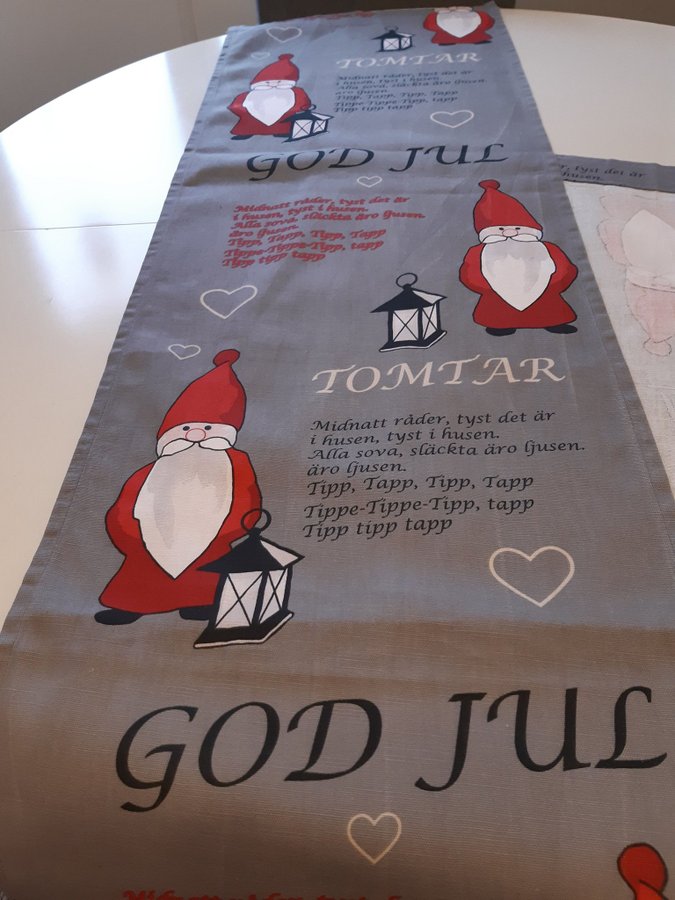 TOMTAR
Midnatt råder, tyst det är
i husen, tyst i husen.
Alla sova, släckta äro ljusen.
äro ljusen.
Tipp, Tapp, Tipp, Tapp
Tippe-Tippe-Tipp, tapp
Tipp tipp tapp
GOD JUL
Midnatt råder, tyst det är
i husen, tyst i husen.
Alla sova, släckta äro ljusen.
äro ljusen.
Tipp, Tapp, Tipp, Tapp
Tippe-Tippe-Tipp, tapp
Tipp tipp tapp
tyst det är
husen.
TOMTAR
Midnatt råder, tyst det är
i husen, tyst i husen.
Alla sova, släckta äro ljusen.
äro ljusen.
Tipp, Tapp, Tipp, Tapp
Tippe-Tippe-Tipp, tapp
Tipp tipp tapp
GOD JUL